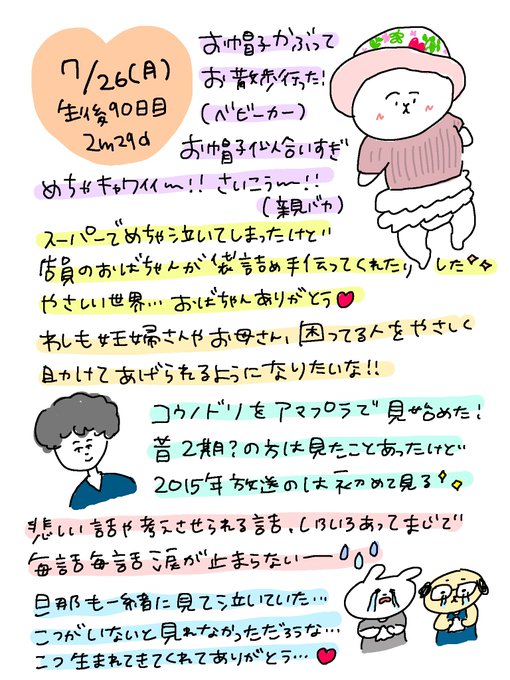 7/26(月)
生後90日目
2m29d
お帽子かぶって
お散歩行った!
(ベビーカー)
お帽子似合いすぎ
めちゃキャワイイ〜!! さいこう〜!!
(親バカ)
スーパーでめちゃ泣いてしまったけど‥
店員のおばちゃんが袋詰め手伝ってくれたりした
やさしい世界… おばちゃんありがとう
わしも妊婦さんやお母さん、困ってる人をやさしく
助けてあげられるようになりたいな!!
コウノドリをアマプラで見始めた!
昔2期?の方は見たことあったけど‥
2015年放送のは初めて見る
悲しい話や考えさせられる話、いろいろあってまじで
毎話毎話涙が止まらないー
旦那も一緒に見て泣いていた…
こつがいないと見れなかっただろうな…
こつ生まれてきてくれてありがとう…